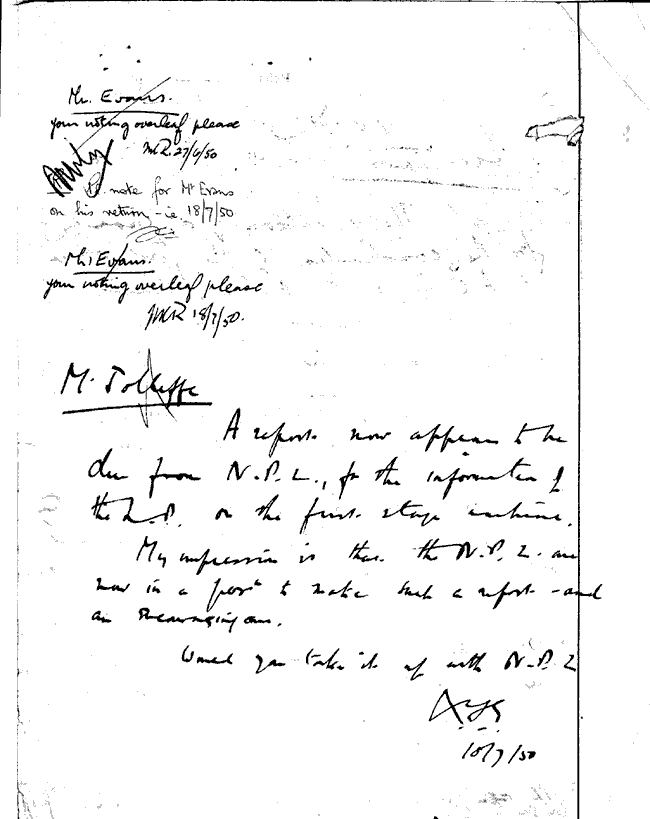 Mr. Evans.
your noting overleaf please
27/6/50
note for Mr Evans
on his return - ie. 18/7/50
Mr. Evans.
your noting overleaf please
18/7/50.
Mr.
A report now appears to be
due from N.P.L., for the information of
the on the first stage machine.
My impression is that the N.P.L. are
now in a posn to make such a report - and
an encouraging one.
Would you take it up with N.P.L
/7/50